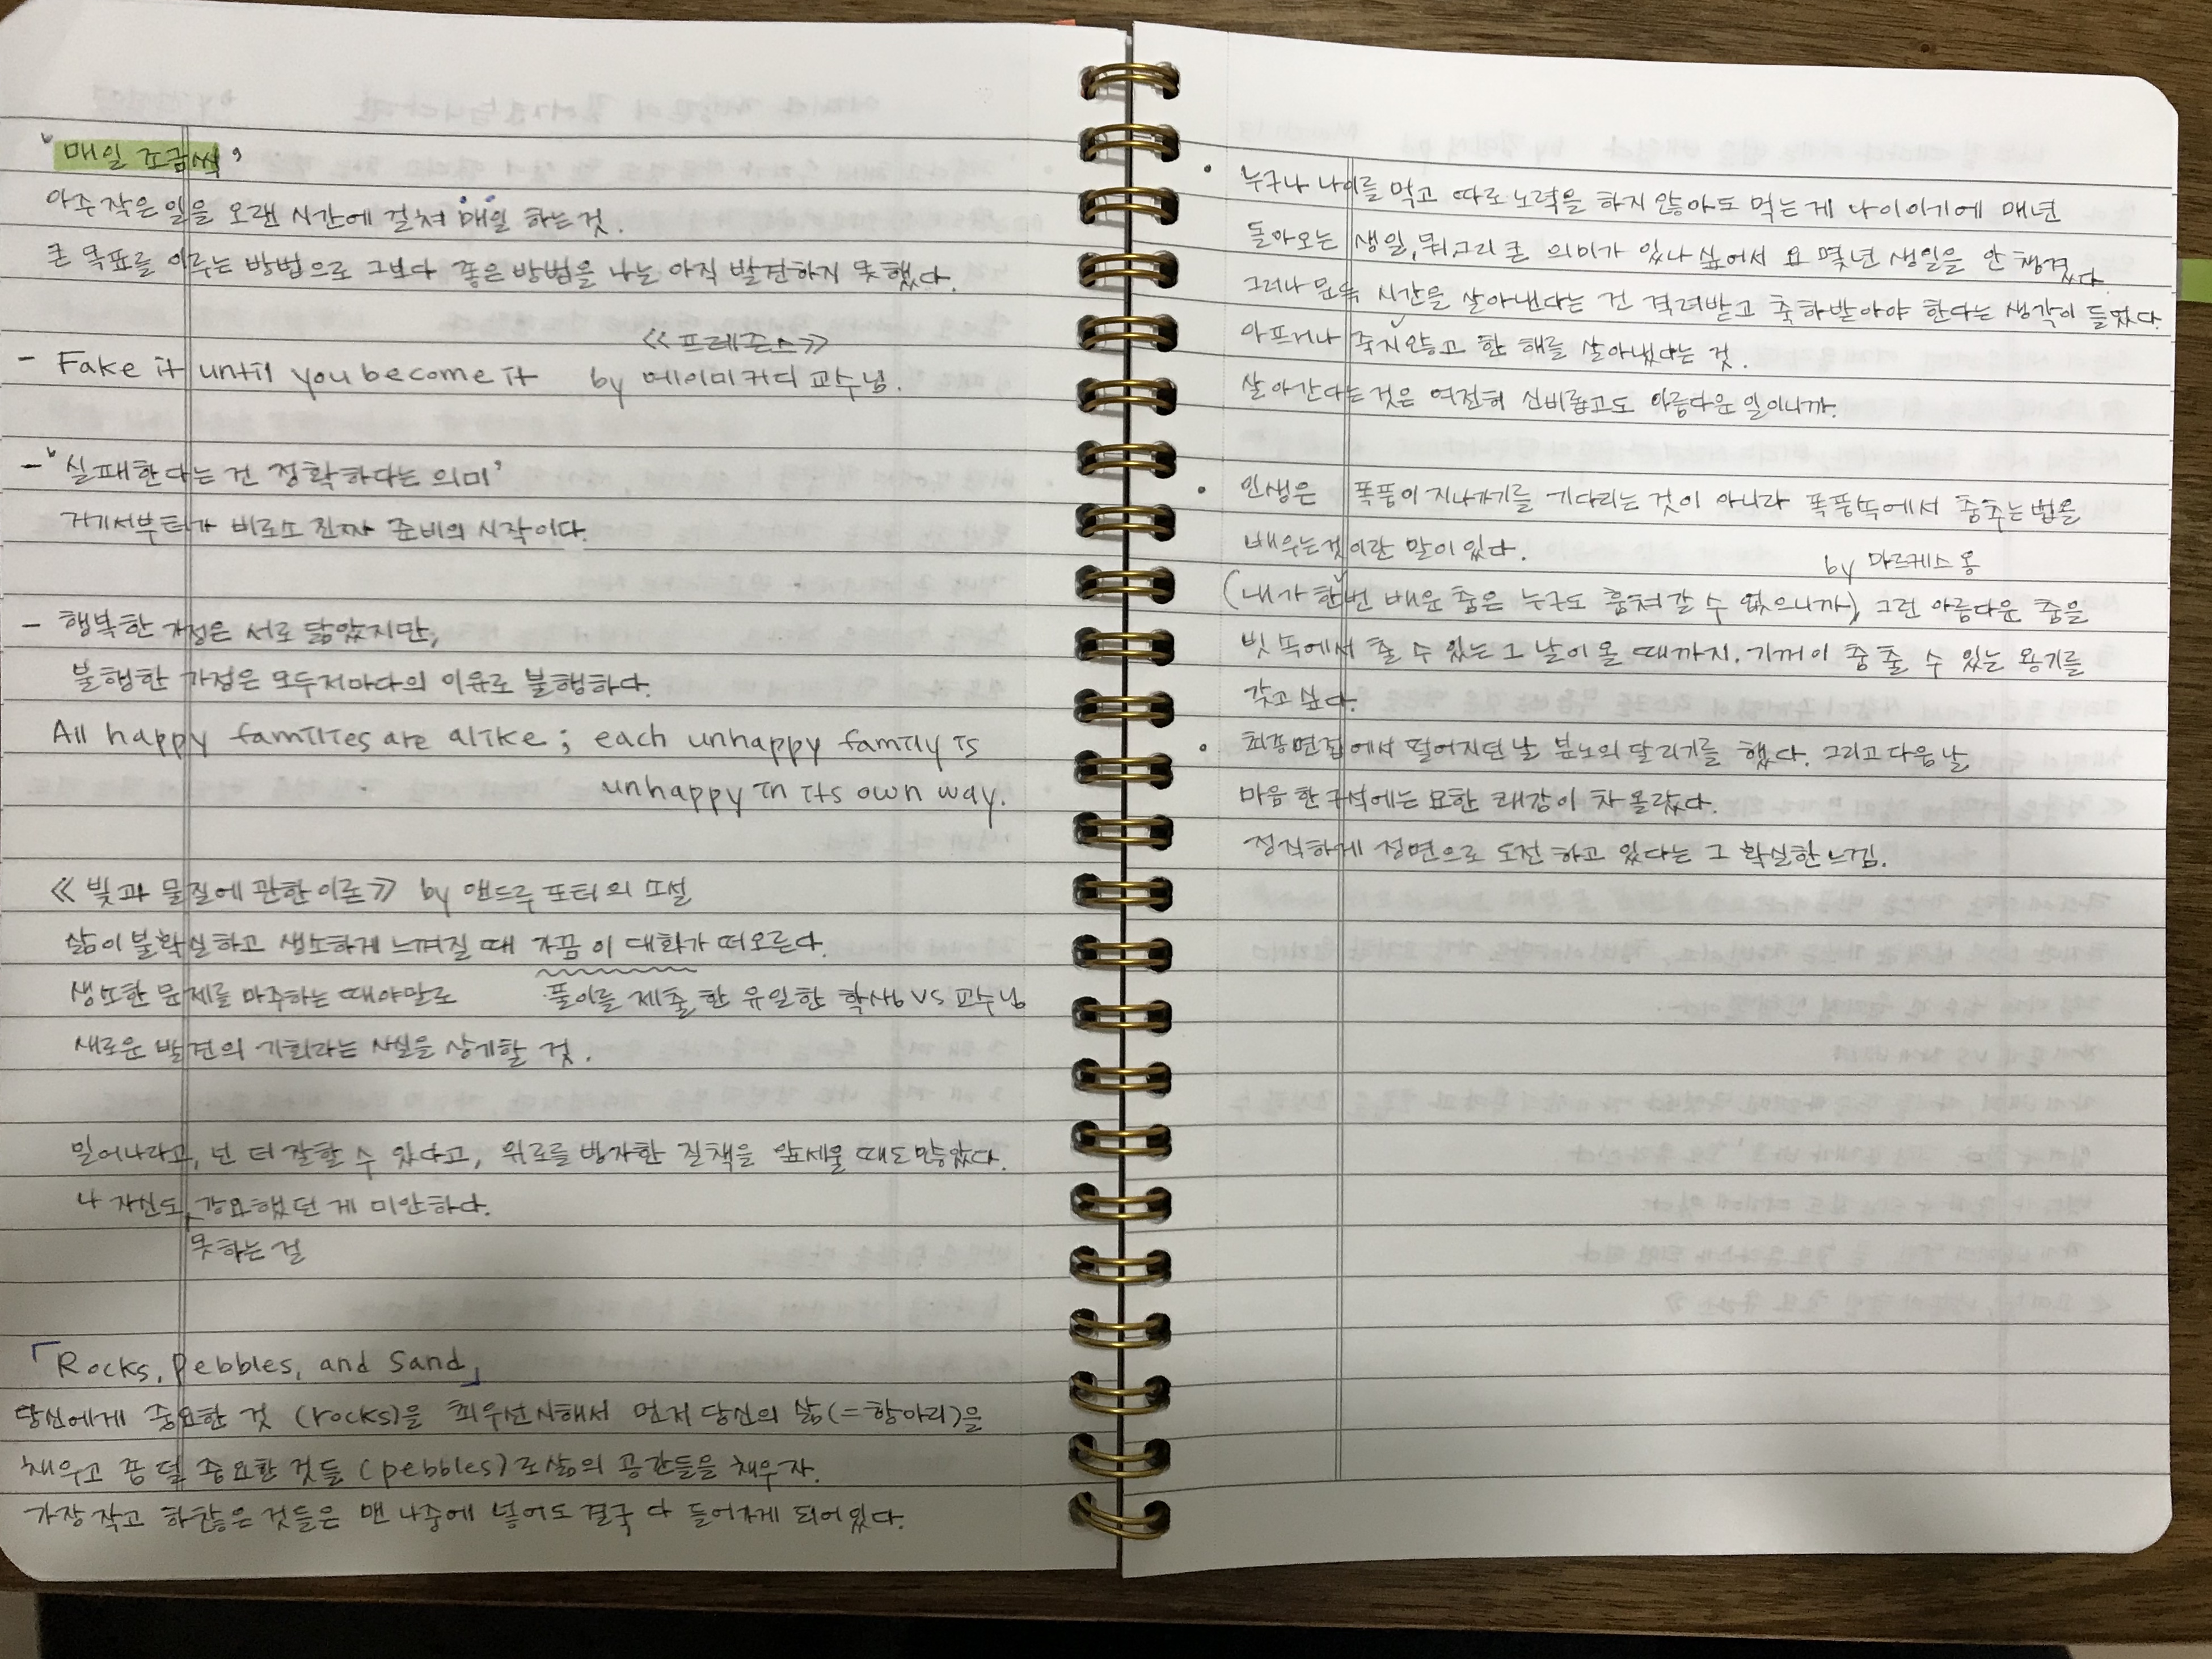 '매일 조금씩'
아주 작은 일을 오랜 시간에 걸쳐 매일 하는 것.
큰 목표를 이루는 방법으로 그보다 좋은 방법을 나는 아직 발견하지 못했다.
《프레즌스》
- Fake it until you become it by 에이미커디 교수님.
- '실패한다는 건 정확하다는 의미'
거기서부터가 비로소 진짜 준비의 시작이다.
- 행복한 가정은 서로 닮았지만,
불행한 가정은 모두저마다의 이유로 불행하다.
All happy families are alike; each unhappy family is
unhappy in its own way.
《빛과 물질에 관한이론》 by 앤드루 포터의 소설
삶이 불확실하고 생소하게 느껴질 때 가끔 이 대화가 떠오른다.
생소한 문제를 마주하는 때야말로 풀이를 제출한 유일한 학생 vs 교수님
새로운 발견의 기회라는 사실을 상기할 것.
일어나라고, 넌 더 잘할 수 있다고, 위로를 빙자한 질책을 앞세울 때도 많았다.
나 자신도 강요했던 게 미안하다.
못하는 걸
「Rocks, Pebbles, and Sand」
당신에게 중요한 것 (rocks)을 최우선시해서 먼저 당신의 삶(=항아리)을
채우고 좀 덜 중요한 것들 (pebbles)로 삶의 공간들을 채우자.
가장 작고 하찮은 것들은 맨 나중에 넣어도 결국 다 들어가게 되어있다.
• 누구나 나이를 먹고 따로 노력을 하지 않아도 먹는 게 나이이기에 매년
돌아오는 생일, 뭐그리 큰 의미가 있나 싶어서 요 몇년 생일을 안 챙겼다.
그러나 문득 시간을 살아낸다는 건 격려받고 축하받아야 한다는 생각이 들었다.
아프거나 죽지않고 한 해를 살아냈다는 것.
살아간다는 것은 여전히 신비롭고도 아름다운 일이니까.
• 인생은 폭풍이 지나가기를 기다리는 것이 아니라 폭풍속에서 춤추는 법을
배우는것이란 말이 있다.
by 마르케스 옹
(내가 한번 배운 춤은 누구도 훔쳐갈 수 없으니까), 그런 아름다운 춤을
빗 속에서 출 수 있는 그 날이 올 때까지. 기꺼이 춤 출 수 있는 용기를
갖고 싶다.
• 최종면접에서 떨어지던 날 분노의 달리기를 했다. 그리고 다음날
마음 한구석에는 묘한 쾌감이 차 올랐다.
정직하게 정면으로 도전 하고 있다는 그 확실한 느낌.